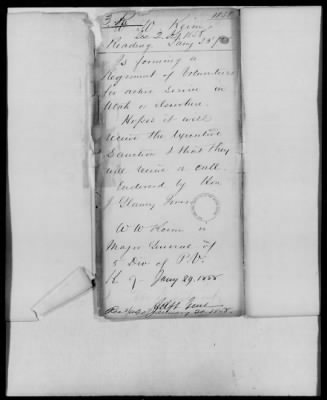 Keim
Reading Jany 25th
Is forming a
Regiment of Volunteers
for active service in
Utah or elsewhere.
Hopes it will
receive the Executive
Sanction & that they
will receive a call.
Endorsed by Hon
J Glancy Jones
W W Keim is
Major General of
5 Div of P.V.
Jany 29. 1858